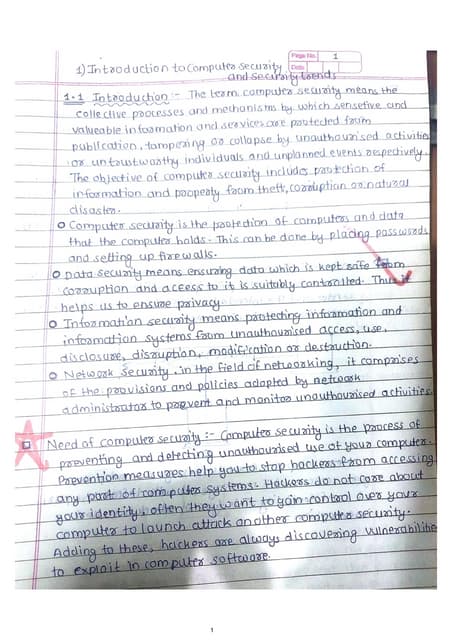 Page No. 1
Date
1) Introduction to Computer security
and security trends
1.1 Introduction :- The term computer security means the
collective processes and mechanisms by which sensetive and
valueable information and services are protected from
publication, tampering or collapse by unauthourised activities
or untrustworthy individuals and unplanned events respectively.
The objective of computer security includes protection of
information and property from theft, corruption or natural
disaster.
Computer security is the protection of computers and data
that the computer holds. This can be done by placing passwords
and setting up firewalls.
Data security means ensuring data which is kept safe from
corruption and access to it is suitably controlled. Thus it
helps us to ensure privacy.
Information security means protecting information and
information systems from unauthourised access, use,
disclosure, disruption, modification or destruction.
Network security. in the field of networking, it comprises
of the provisions and policies adopted by network
administrator to prevent and monitor unauthourised activities.
Need of computer security :- Computer security is the process of
preventing and detecting unauthourised use of your computer.
Prevention measures help you to stop hackers from accessing
any part of computer systems. Hackers do not care about
your identity. often they want to gain control over your
computer to launch attack another computer security.
Adding to these, hackers are always discovering vulnerabilities
to exploit in computer software.
1